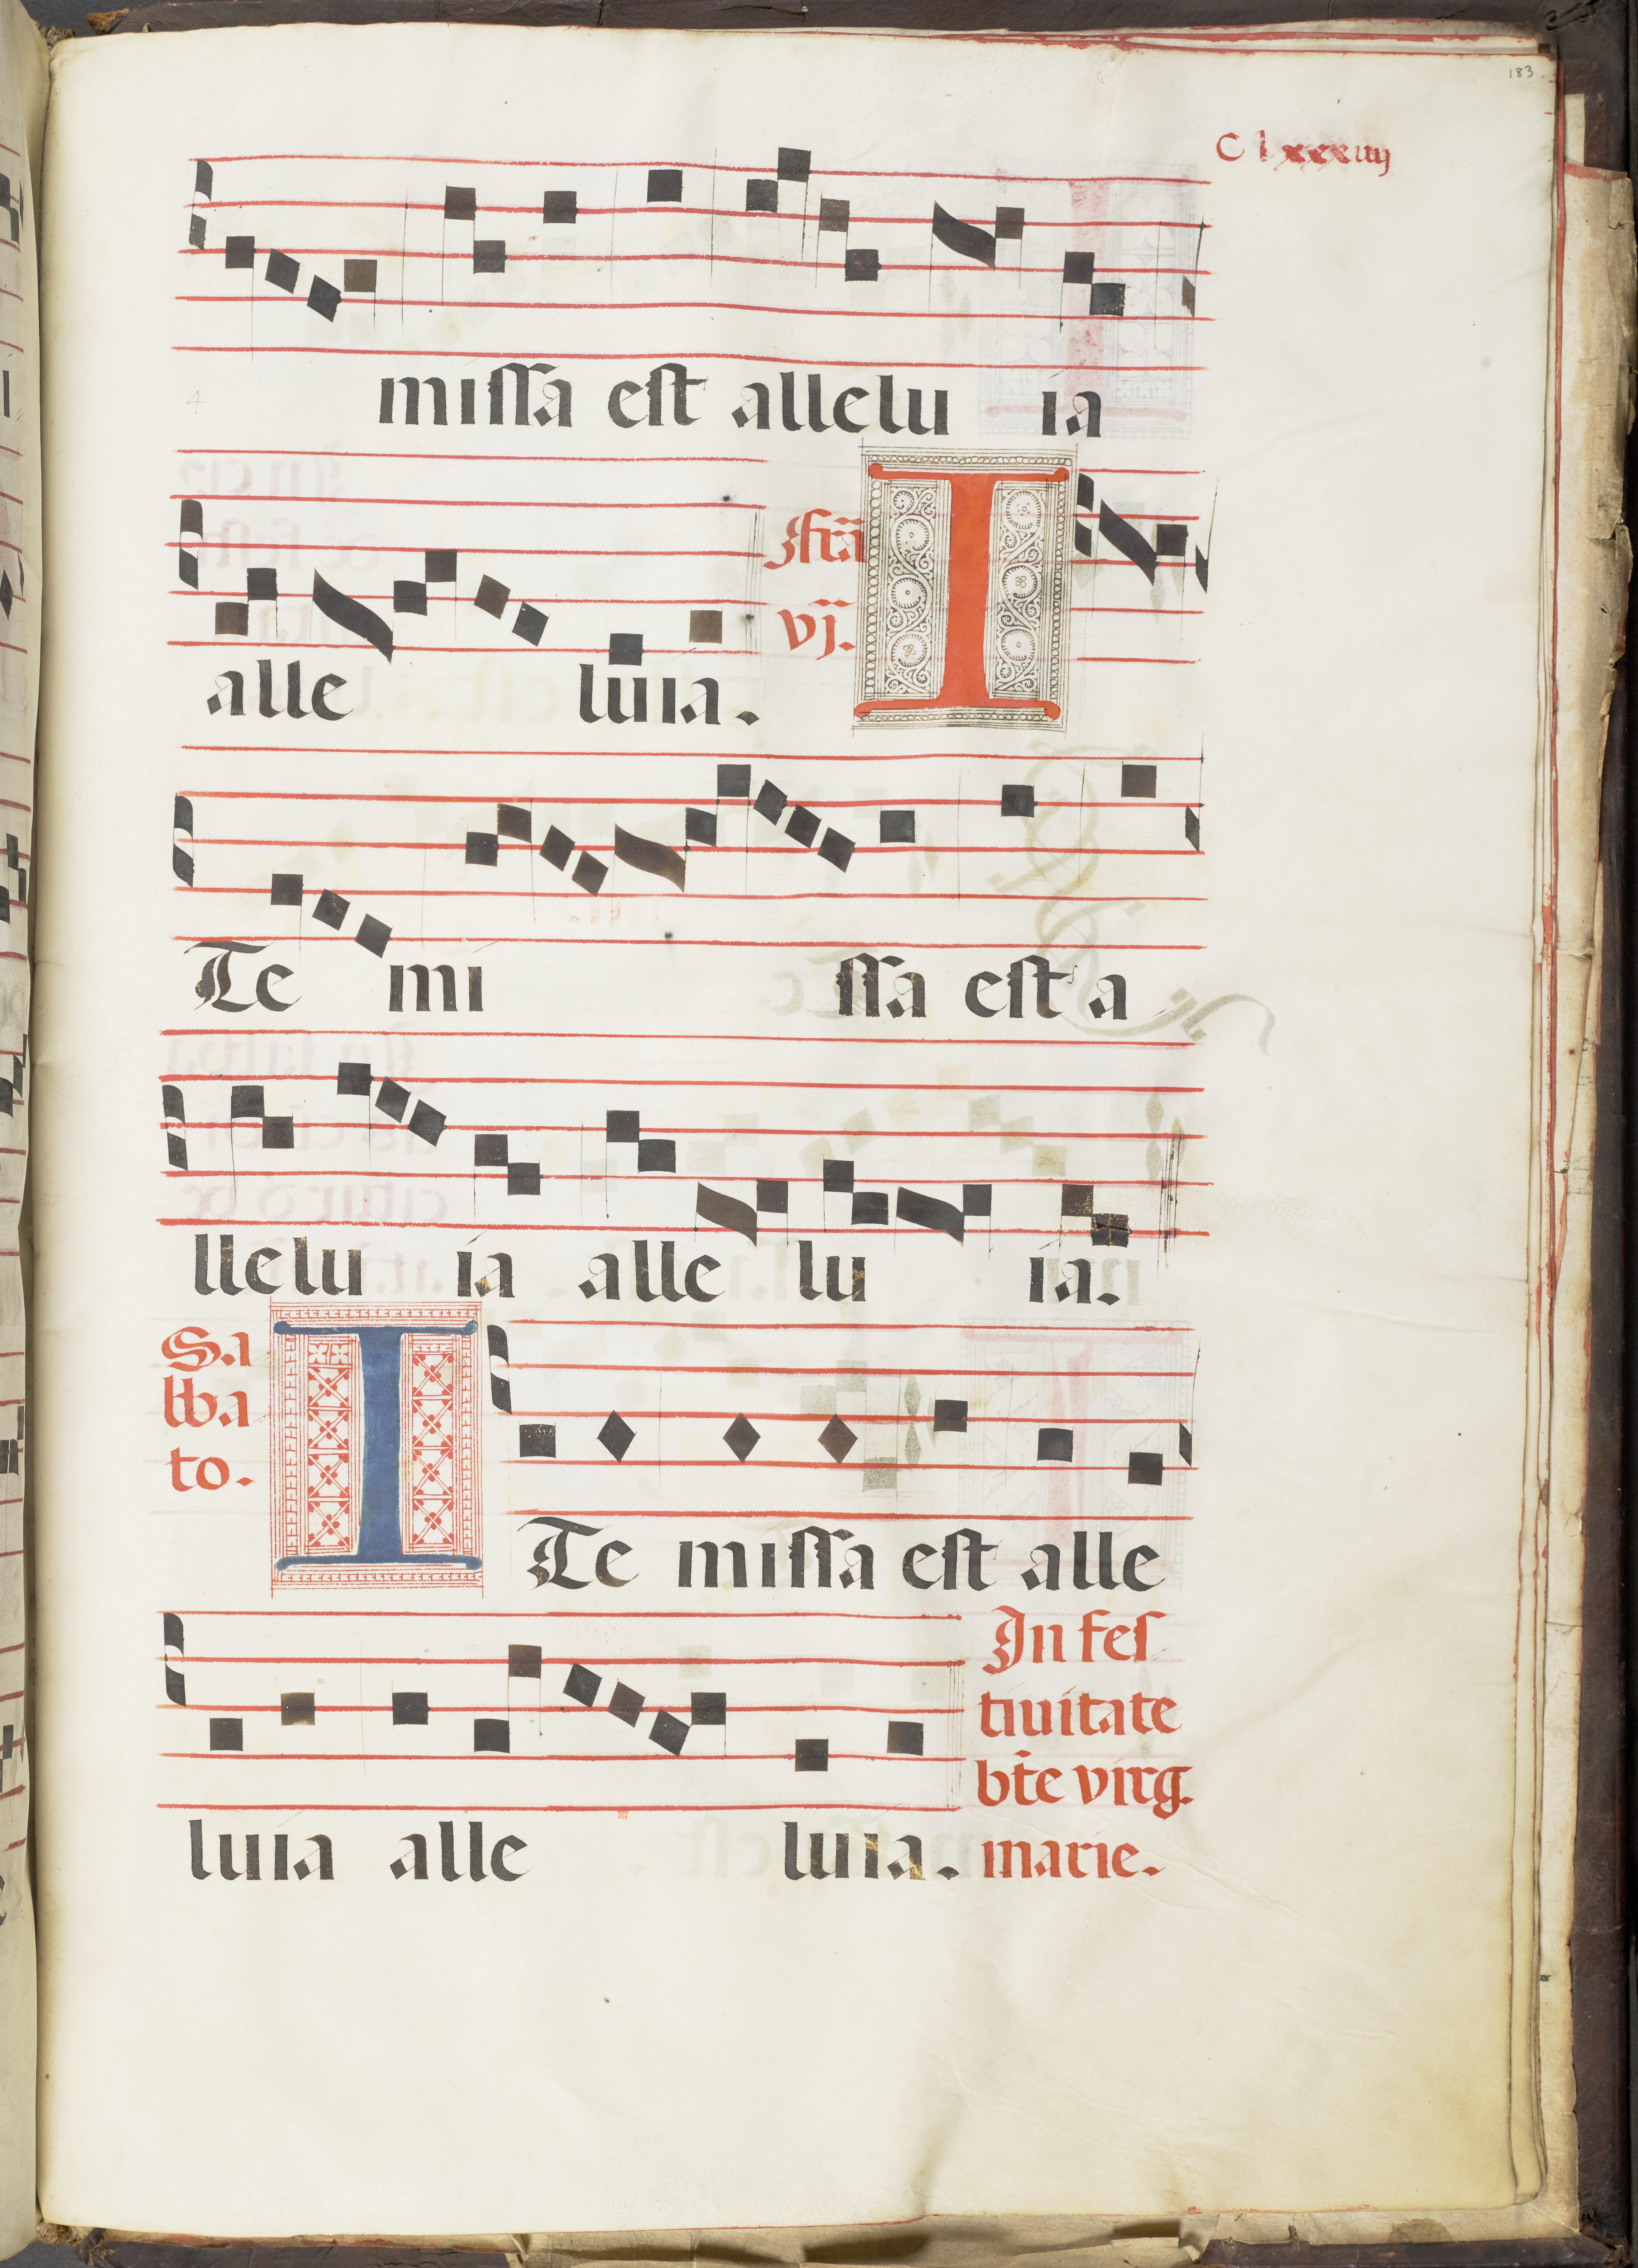 183
Clxxxiiij
missa est allelu ia
alle luia. fr̃a
vj. I
Te mi ssa est a
llelu ia alle lu ia.
Sa
bba
to. I Te missa est alle
In fes
tiuitate
bt̃e virg.
luia alle luia. marie.